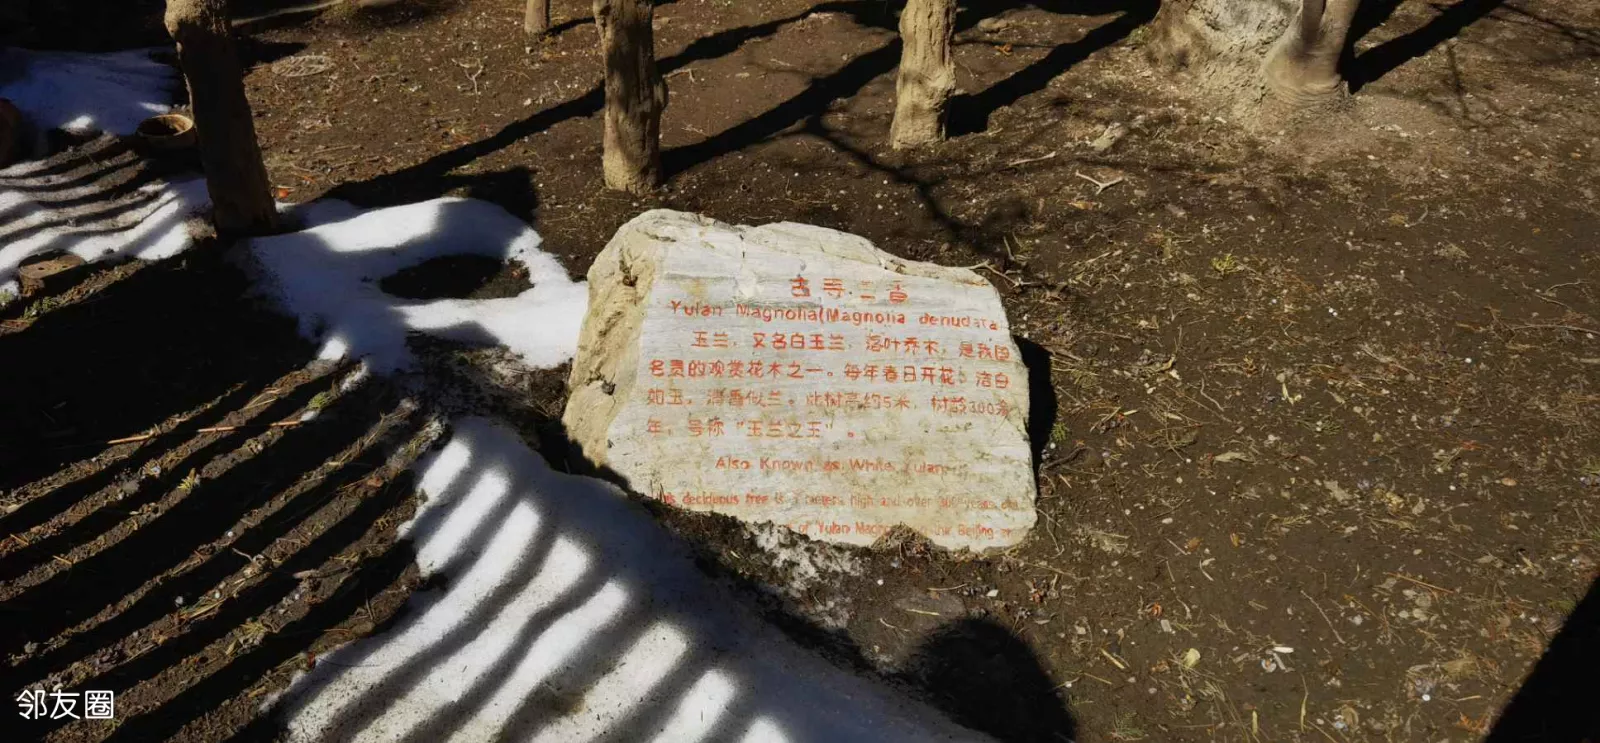 古寺兰香
Yulan Magnolia(Magnolia denudata
玉兰，又名白玉兰，落叶乔木，是我国
名贵的观赏花木之一。每年春日开花，洁白
如玉，清香似兰。此树高约5米，树龄300余
年，号称“玉兰之王”。
Also Known as White Yulan
deciduous tree is meters high and over 300 years
of Yulan Beijing
邻友圈